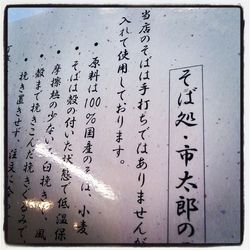 そば処・市太郎の
当店のそばは手打ちではありませんが
入れて使用しております。
・原料は100%国産のそば、小麦
・そばは殻の付いた状態で低温保
摩擦熱の少ない石臼挽き、風
・殻まで挽きこんだ挽きぐるみで、
挽き置きせず